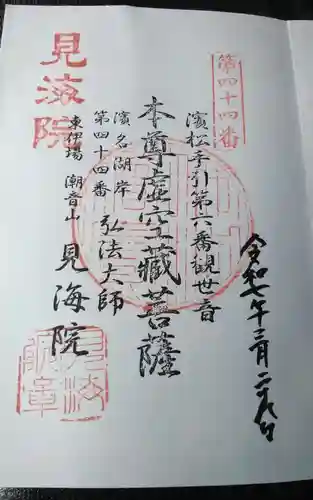 第四十四番
令和七年三月二十九日
濱松手引第六番観世音
本尊虚空藏菩薩
濱名湖岸 弘法大師
第四十四番
東伊場 潮音山 見海院
見海院